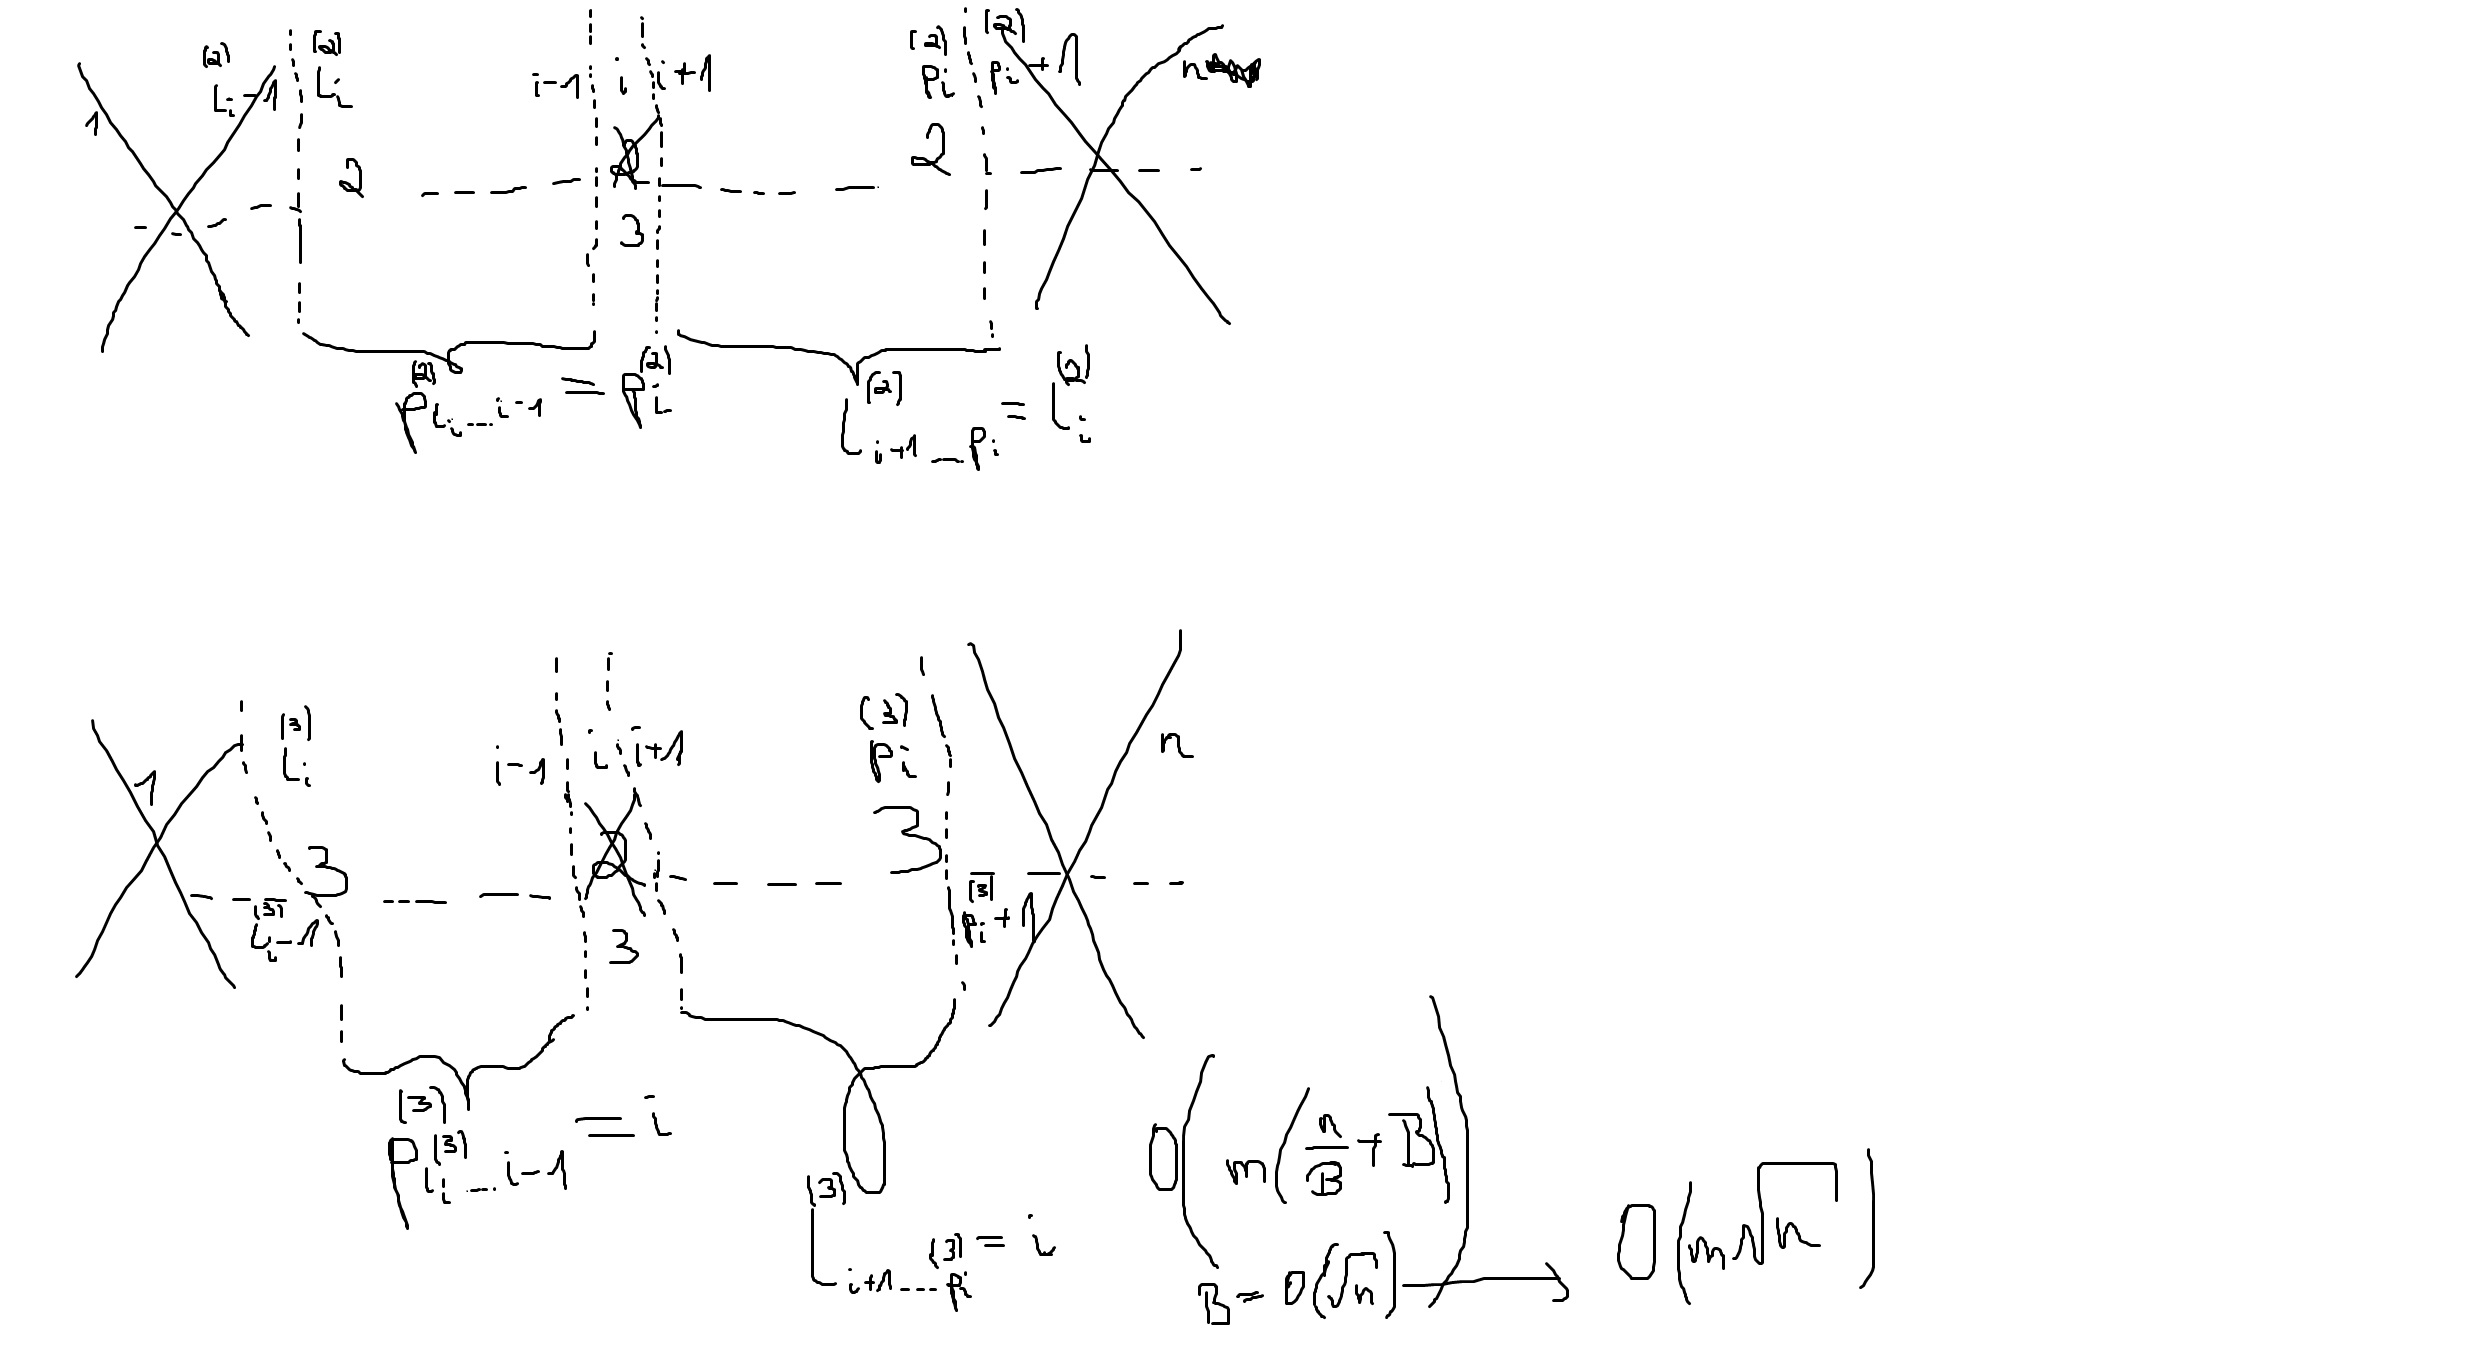 1 L_i^(2)-1 L_i^(2) i-1 i i+1 P_i^(2) P_i^(2)+1 n
2 2 2
3
P^(2)_{L_i...i-1} = P_i^(2) L^(2)_{i+1...P_i} = L_i^(2)
1 L_i^(3) i-1 i i+1 P_i^(3) n
3 2 3
L_i^(3)-1 3 P_i^(3)+1
P^(3)_{L_i^(3)...i-1} = i
L^(3)_{i+1...P_i^(3)} = i
O(m(n/B + B))
B = O(√n) → O(m√n)